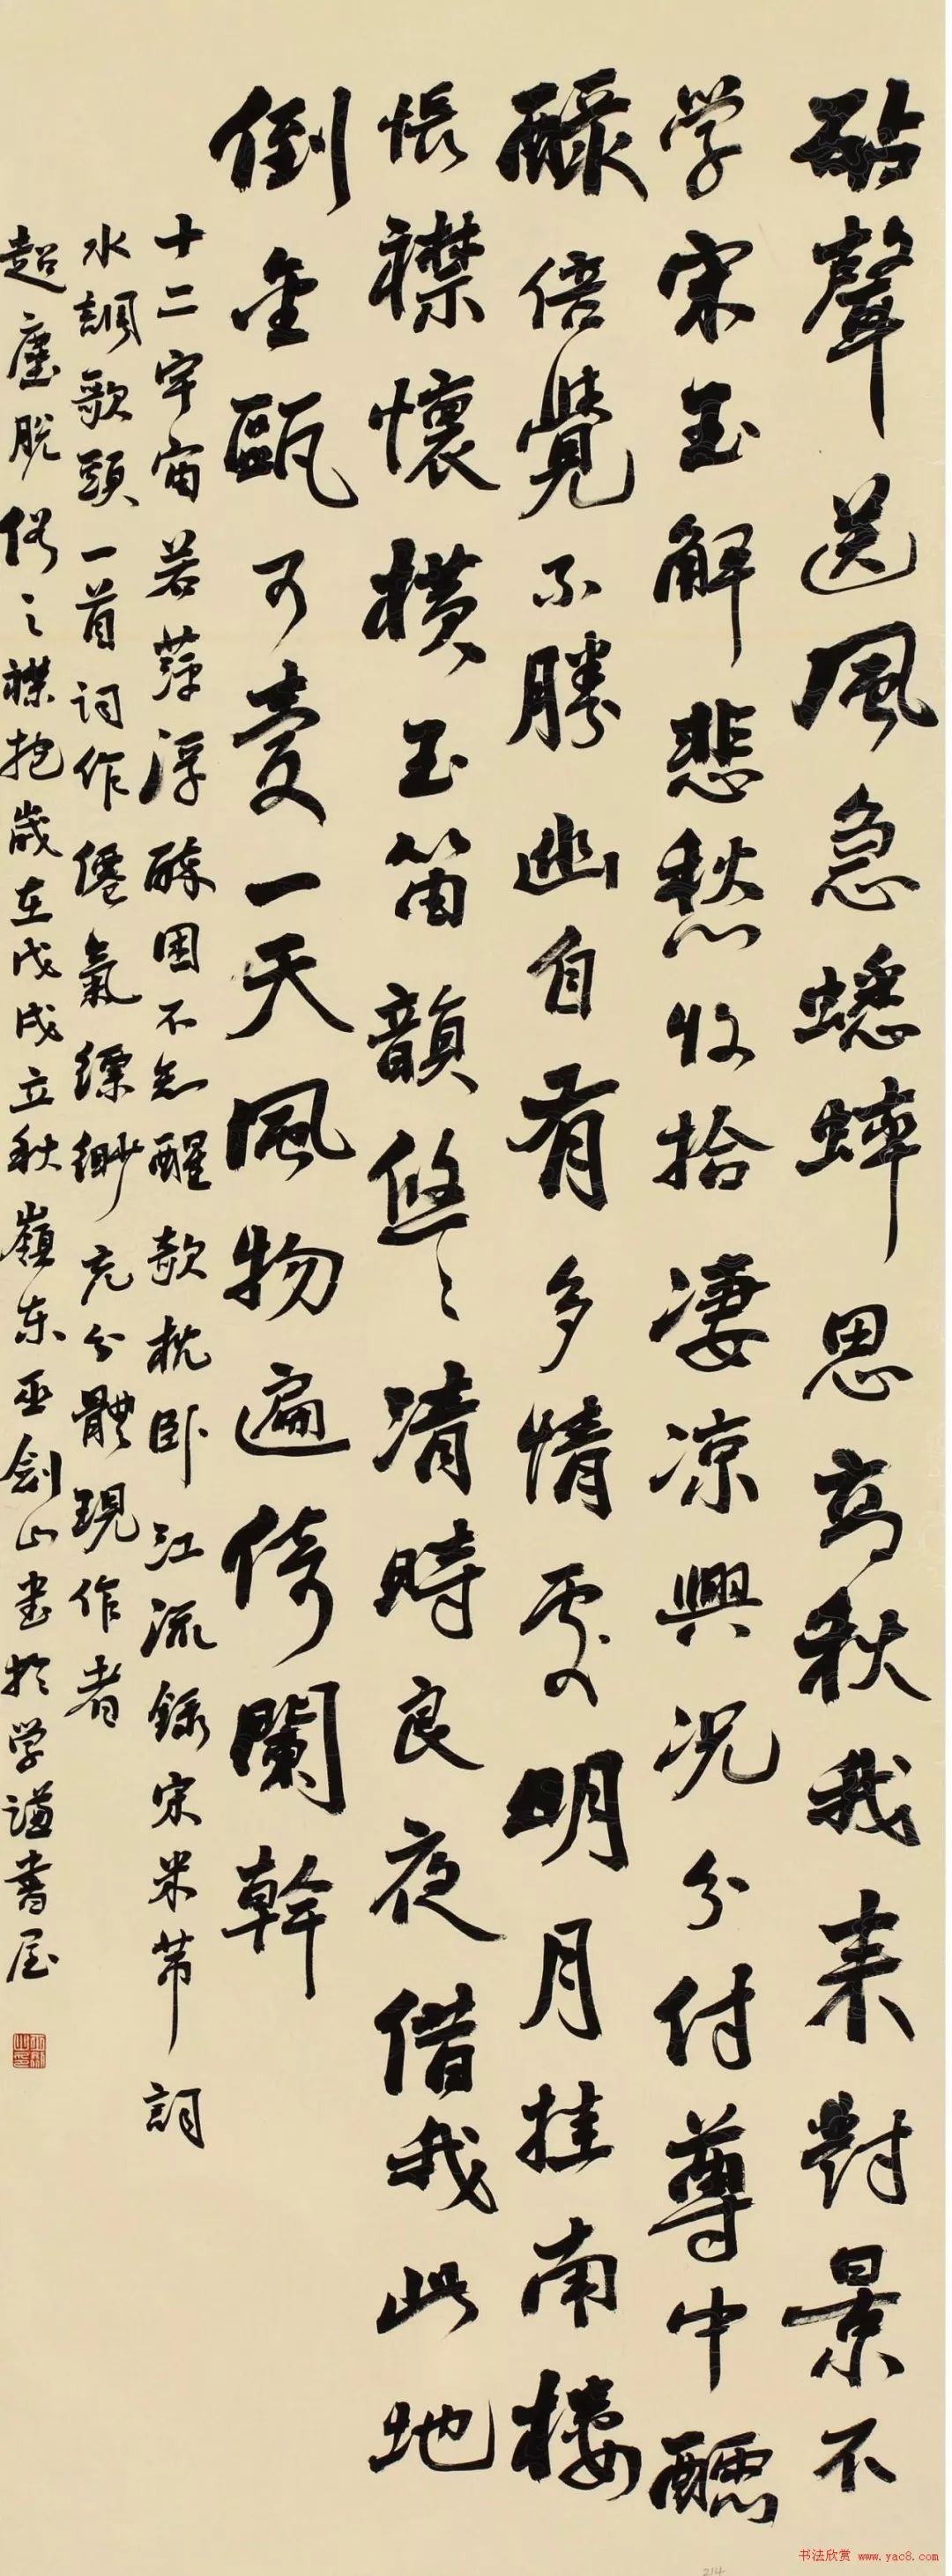 砧聲送風急蟋蟀思高秋我来對景不
学宋玉解悲愁收拾凄凉興况分付尊中醽
醁倍覺不勝幽自有多情處明月挂南楼
悵襟懷横玉笛韻悠〻清時良夜借我此地
倒金甌可爱一天風物遍倚闌幹
十二宇宙若萍浮醉困不知醒欹枕卧江流録宋米芾詞
水調歌頭一首词作僊氣縹緲充分體現作者
超塵脱俗之襟抱歲在戊戌立秋嶺东巫劍山書於学谦書屋
书法欣赏 www.yac8.com
214